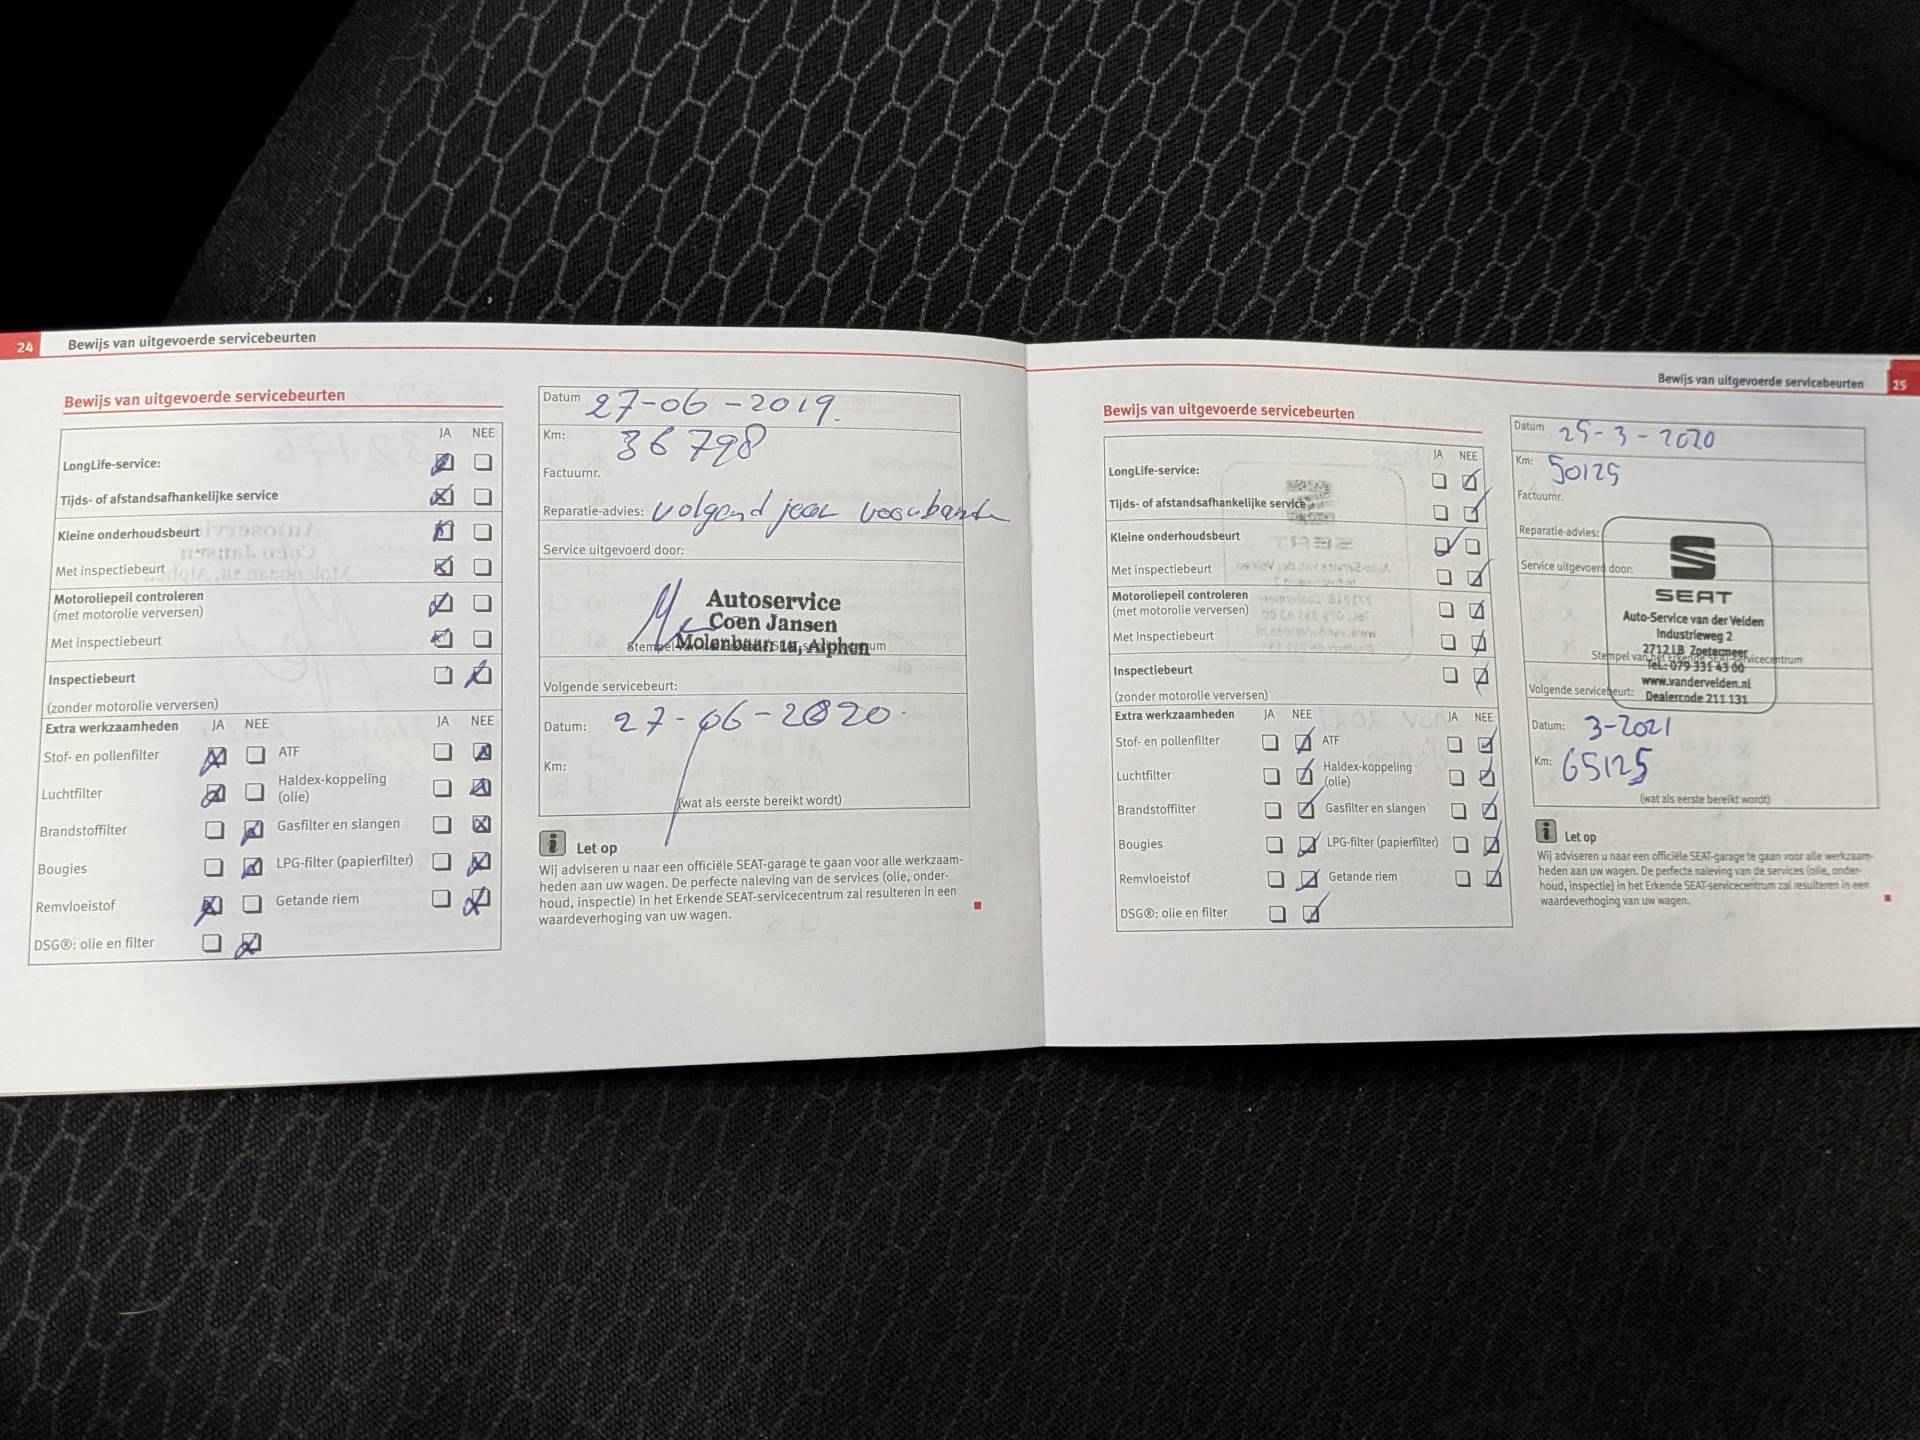 24
Bewijs van uitgevoerde servicebeurten
Bewijs van uitgevoerde servicebeurten
JA NEE
LongLife-service:
Tijds- of afstandsafhankelijke service
Kleine onderhoudsbeurt
Met inspectiebeurt
Motoroliepeil controleren
(met motorolie verversen)
Met inspectiebeurt
Inspectiebeurt
(zonder motorolie verversen)
Extra werkzaamheden JA NEE JA NEE
Stof- en pollenfilter ATF
Luchtfilter Haldex-koppeling
(olie)
Brandstoffilter Gasfilter en slangen
Bougies LPG-filter (papierfilter)
Remvloeistof Getande riem
DSG®: olie en filter
Datum 27-06-2019.
Km: 36798
Factuurnr.
Reparatie-advies: volgend jaar voorbanden
Service uitgevoerd door:
Autoservice
Coen Jansen
Molenbaan 18, Alphen
Volgende servicebeurt:
Datum: 27-06-2020.
Km:
(wat als eerste bereikt wordt)
i Let op
Wij adviseren u naar een officiële SEAT-garage te gaan voor alle werkzaam-
heden aan uw wagen. De perfecte naleving van de services (olie, onder-
houd, inspectie) in het Erkende SEAT-servicecentrum zal resulteren in een
waardeverhoging van uw wagen.
Bewijs van uitgevoerde servicebeurten
25
Bewijs van uitgevoerde servicebeurten
JA NEE
LongLife-service:
Tijds- of afstandsafhankelijke service
Kleine onderhoudsbeurt
Met inspectiebeurt
Motoroliepeil controleren
(met motorolie verversen)
Met inspectiebeurt
Inspectiebeurt
(zonder motorolie verversen)
Extra werkzaamheden JA NEE JA NEE
Stof- en pollenfilter ATF
Luchtfilter Haldex-koppeling
(olie)
Brandstoffilter Gasfilter en slangen
Bougies LPG-filter (papierfilter)
Remvloeistof Getande riem
DSG®: olie en filter
Datum 25-3-2020
Km: 50125
Factuurnr.
Reparatie-advies:
Service uitgevoerd door:
SEAT
Auto-Service van der Velden
Industrieweg 2
2712 LB Zoetermeer
Stempel van het Erkende SEAT-servicecentrum
Tel.: 079 331 43 00
www.vandervelden.nl
Dealercode 211 131
Volgende servicebeurt:
Datum: 3-2021
Km: 65125
(wat als eerste bereikt wordt)
i Let op
Wij adviseren u naar een officiële SEAT-garage te gaan voor alle werkzaam-
heden aan uw wagen. De perfecte naleving van de services (olie, onder-
houd, inspectie) in het Erkende SEAT-servicecentrum zal resulteren in een
waardeverhoging van uw wagen.